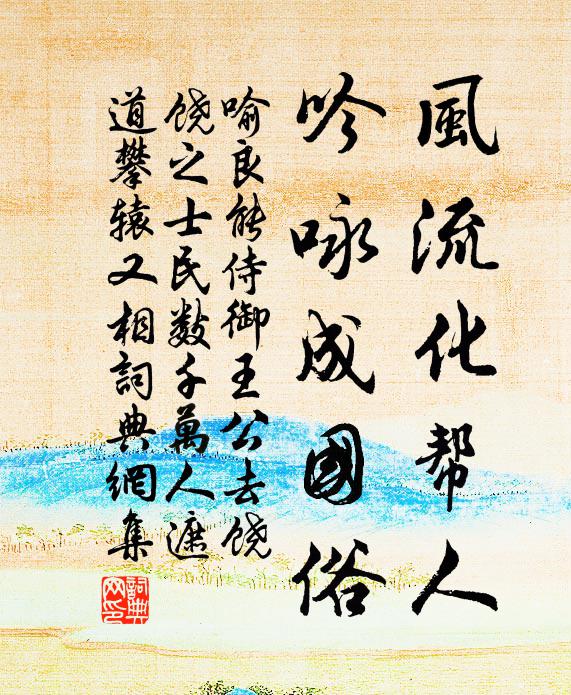 風流化帮人
吟咏成國俗
喻良能侍御王公去饶
饶之士民数千萬人遮
道攀辕又相詞典網集
詞典网印